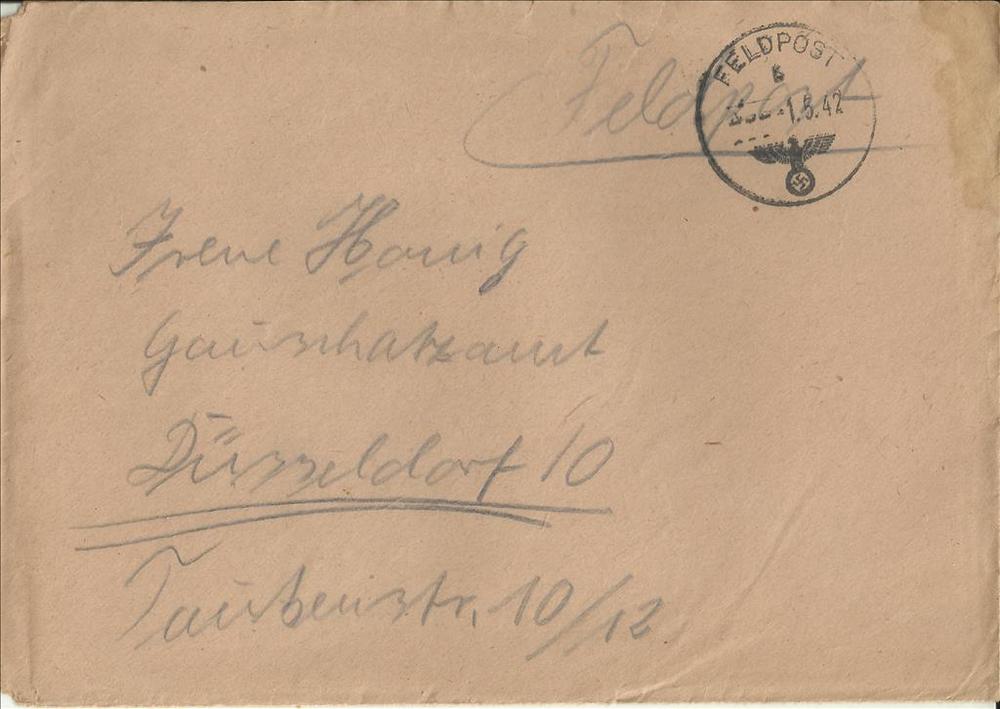 Feldpost
FELDPOST
b
-1.5.42
Irene Honig
Gauschatzamt
Düsseldorf 10
Taubenstr. 10/12